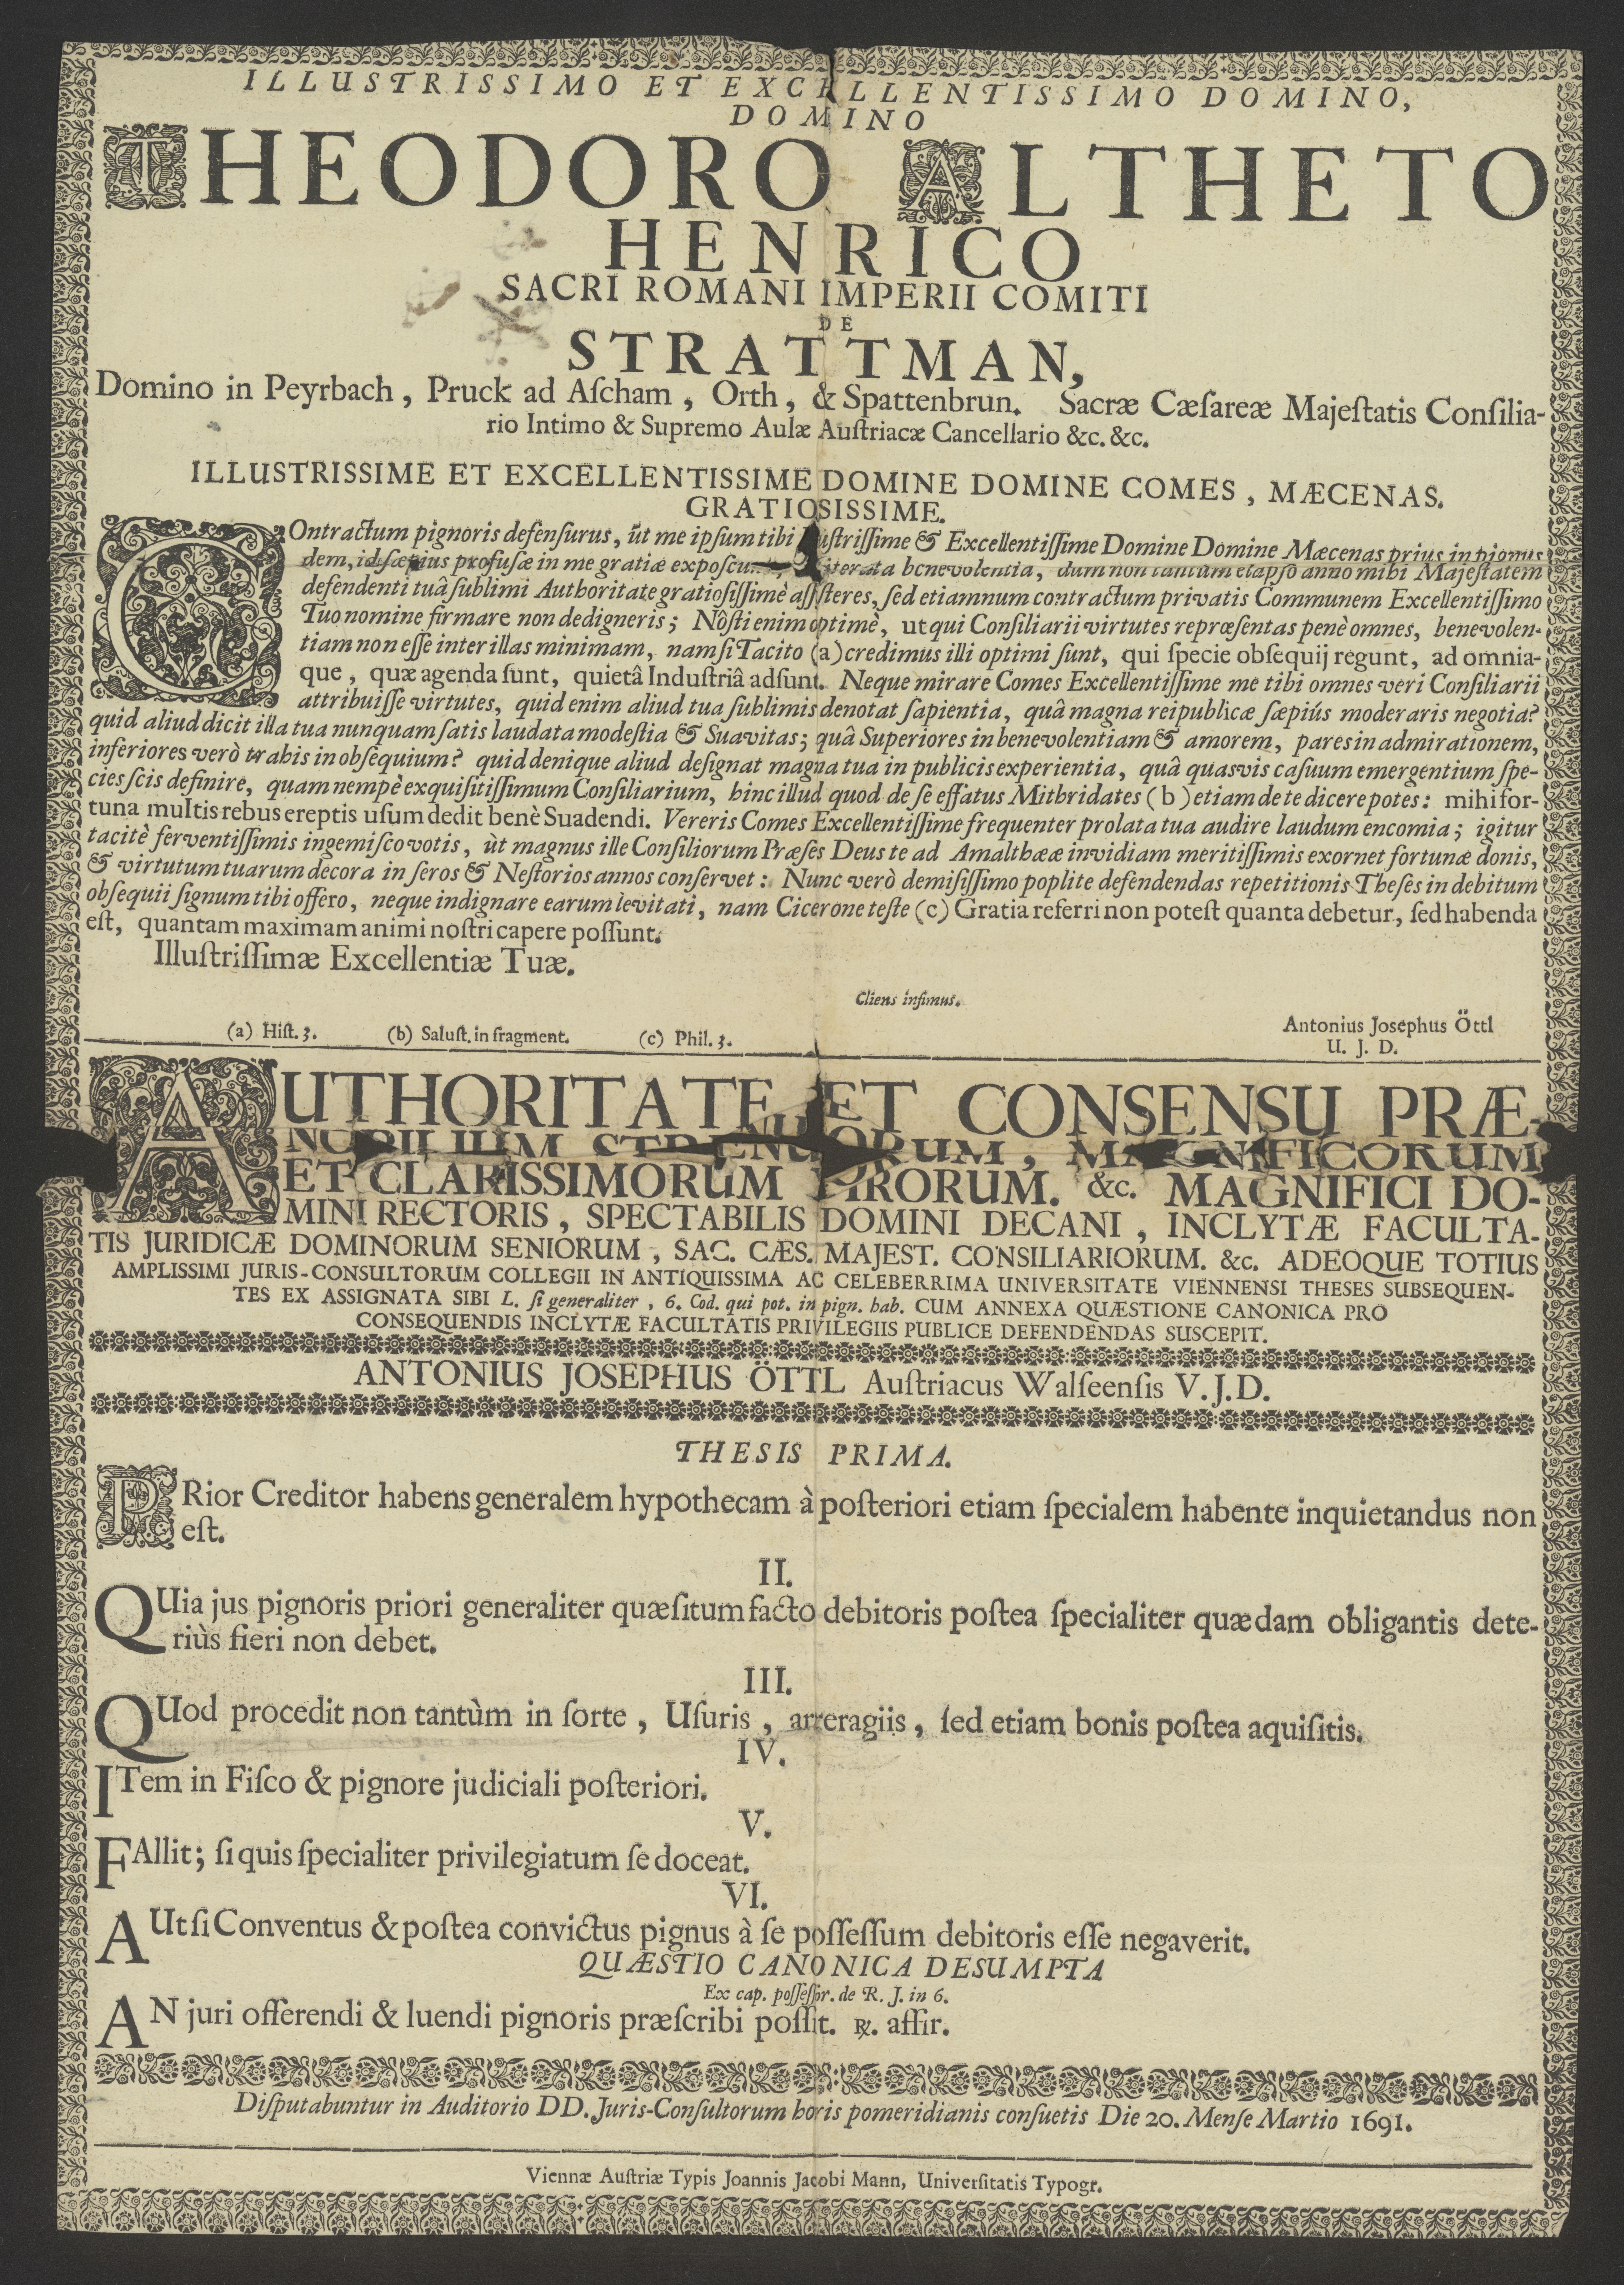 ILLUSTRISSIMO ET EXCELLENTISSIMO DOMINO,
DOMINO
THEODORO ALTHETO
HENRICO
SACRI ROMANI IMPERII COMITI
DE
STRATTMAN,
Domino in Peyrbach, Pruck ad Aſcham, Orth, & Spattenbrun. Sacræ Cæſareæ Majeſtatis Conſilia-
rio Intimo & Supremo Aulæ Auſtriacæ Cancellario &c. &c.
ILLUSTRISSIME ET EXCELLENTISSIME DOMINE DOMINE COMES, MÆCENAS.
GRATIOSISSIME.
COntractum pignoris defenſurus, ùt me ipſum tibi Illuſtriſſime & Excellentiſſime Domine Domine Mæcenas prius in pignus
dem, id ſæpius profuſæ in me gratiæ iterata benevolentia, dum non tantùm elapſo anno mihi Majeſtatem
defendenti tuâ ſublimi Authoritate gratioſiſſimè aſſiſteres, ſed etiamnum contractum privatis Communem Excellentiſſimo
Tuo nomine firmare non dedigneris; Nôſti enim optimè, ut qui Conſiliarii virtutes repræſentas penè omnes, benevolen-
tiam non eſſe inter illas minimam, nam ſi Tacito (a) credimus illi optimi ſunt, qui ſpecie obſequij regunt, ad omnia-
que, quæ agenda ſunt, quietâ Induſtriâ adſunt. Neque mirare Comes Excellentiſſime me tibi omnes veri Conſiliarii
attribuiſſe virtutes, quid enim aliud tua ſublimis denotat ſapientia, quâ magna reipublicæ ſæpiús moderaris negotia?
quid aliud dicit illa tua nunquam ſatis laudata modeſtia & Suavitas; quâ Superiores in benevolentiam & amorem, pares in admirationem,
inferiores verò trahis in obſequium? quid denique aliud deſignat magna tua in publicis experientia, quâ quasvis caſuum emergentium ſpe-
cies ſcis definire, quam nempè exquiſitiſſimum Conſiliarium, hinc illud quod de ſe effatus Mithridates (b) etiam de te dicere potes: mihi for-
tuna multis rebus ereptis uſum dedit benè Suadendi. Vereris Comes Excellentiſſime frequenter prolata tua audire laudum encomia; igitur
tacitè ferventiſſimis ingemiſco votis, ùt magnus ille Conſiliorum Præſes Deus te ad Amalthææ invidiam meritiſſimis exornet fortunæ donis,
& virtutum tuarum decora in ſeros & Neſtorios annos conſervet: Nunc verò demiſiſſimo poplite defendendas repetitionis Theſes in debitum
obſequii ſignum tibi offero, neque indignare earum levitati, nam Cicerone teſte (c) Gratia referri non poteſt quanta debetur, ſed habenda
eſt, quantam maximam animi noſtri capere poſſunt.
Illuſtriſſimæ Excellentiæ Tuæ.
Cliens infimus.
Antonius Josephus Öttl
U. J. D.
(a) Hiſt. 3. (b) Saluſt. in fragment. (c) Phil. 3.
AUTHORITATE ET CONSENSU PRÆ-
NOBILIUM STRENUORUM, MAGNIFICORUM
ET CLARISSIMORUM VIRORUM. &c. MAGNIFICI DO-
MINI RECTORIS, SPECTABILIS DOMINI DECANI, INCLYTÆ FACULTA-
TIS JURIDICÆ DOMINORUM SENIORUM, SAC. CÆS. MAJEST. CONSILIARIORUM. &c. ADEOQUE TOTIUS
AMPLISSIMI JURIS-CONSULTORUM COLLEGII IN ANTIQUISSIMA AC CELEBERRIMA UNIVERSITATE VIENNENSI THESES SUBSEQUEN-
TES EX ASSIGNATA SIBI L. ſi generaliter, 6. Cod. qui pot. in pign. hab. CUM ANNEXA QUÆSTIONE CANONICA PRO
CONSEQUENDIS INCLYTÆ FACULTATIS PRIVILEGIIS PUBLICE DEFENDENDAS SUSCEPIT.
ANTONIUS JOSEPHUS ÖTTL Auſtriacus Walſeenſis V. J. D.
THESIS PRIMA.
PRior Creditor habens generalem hypothecam à poſteriori etiam ſpecialem habente inquietandus non
eſt.
II.
QUia jus pignoris priori generaliter quæſitum facto debitoris poſtea ſpecialiter quædam obligantis dete-
riùs fieri non debet.
III.
QUod procedit non tantùm in ſorte, Uſuris, arreragiis, ſed etiam bonis poſtea aquiſitis.
IV.
ITem in Fiſco & pignore judiciali poſteriori.
V.
FAllit; ſi quis ſpecialiter privilegiatum ſe doceat.
VI.
AUt ſi Conventus & poſtea convictus pignus à ſe poſſeſſum debitoris eſſe negaverit.
QUÆSTIO CANONICA DESUMPTA
Ex cap. poſſeſſor. de R. J. in 6.
AN juri offerendi & luendi pignoris præſcribi poſſit. ℞. affir.
Diſputabuntur in Auditorio DD. Juris-Conſultorum horis pomeridianis conſuetis Die 20. Menſe Martio 1691.
Viennæ Auſtriæ Typis Joannis Jacobi Mann, Univerſitatis Typogr.